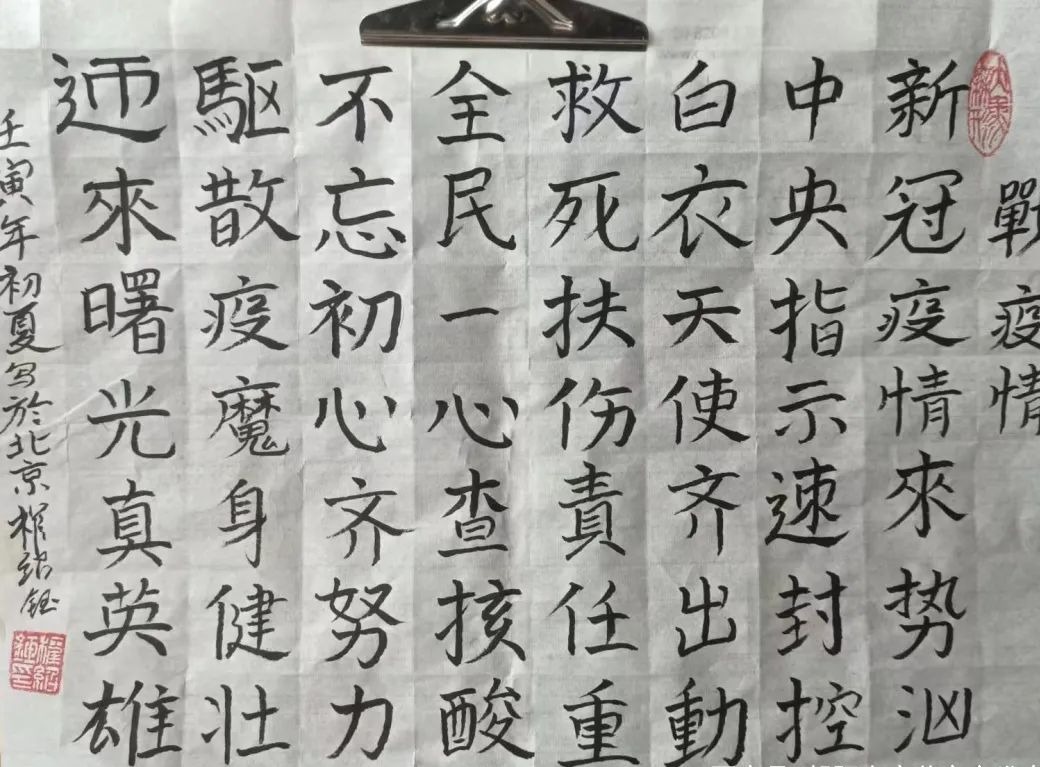 戰疫情
新冠疫情來势汹
中央指示速封控
白衣天使齐出動
救死扶伤責任重
全民一心查核酸
不忘初心齐努力
驅散疫魔身健壮
迊來曙光真英雄
壬寅年初夏写於北京